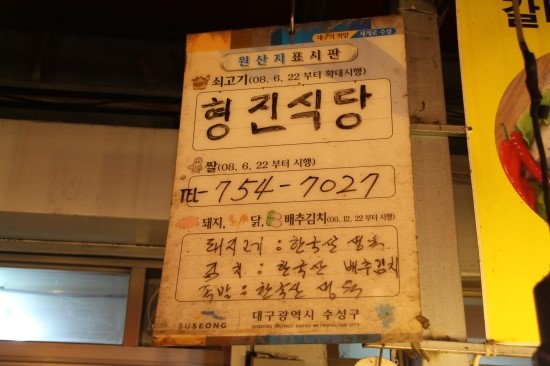 대구의 희망 세계로 수성
원산지표시판
쇠고기(08. 6. 22 부터 확대시행)
형진식당
쌀(08. 6. 22 부터 시행)
TEL-754-7027
돼지, 닭, 배추김치(08. 12. 22 부터 시행)
돼지고기 : 한국산 생육
김치 : 한국산 배추김치
족발 : 한국산 생육
SUSEONG
대구광역시 수성구
SUSEONG DISTRICT DAEGU METROPOLITAN CITY
갈